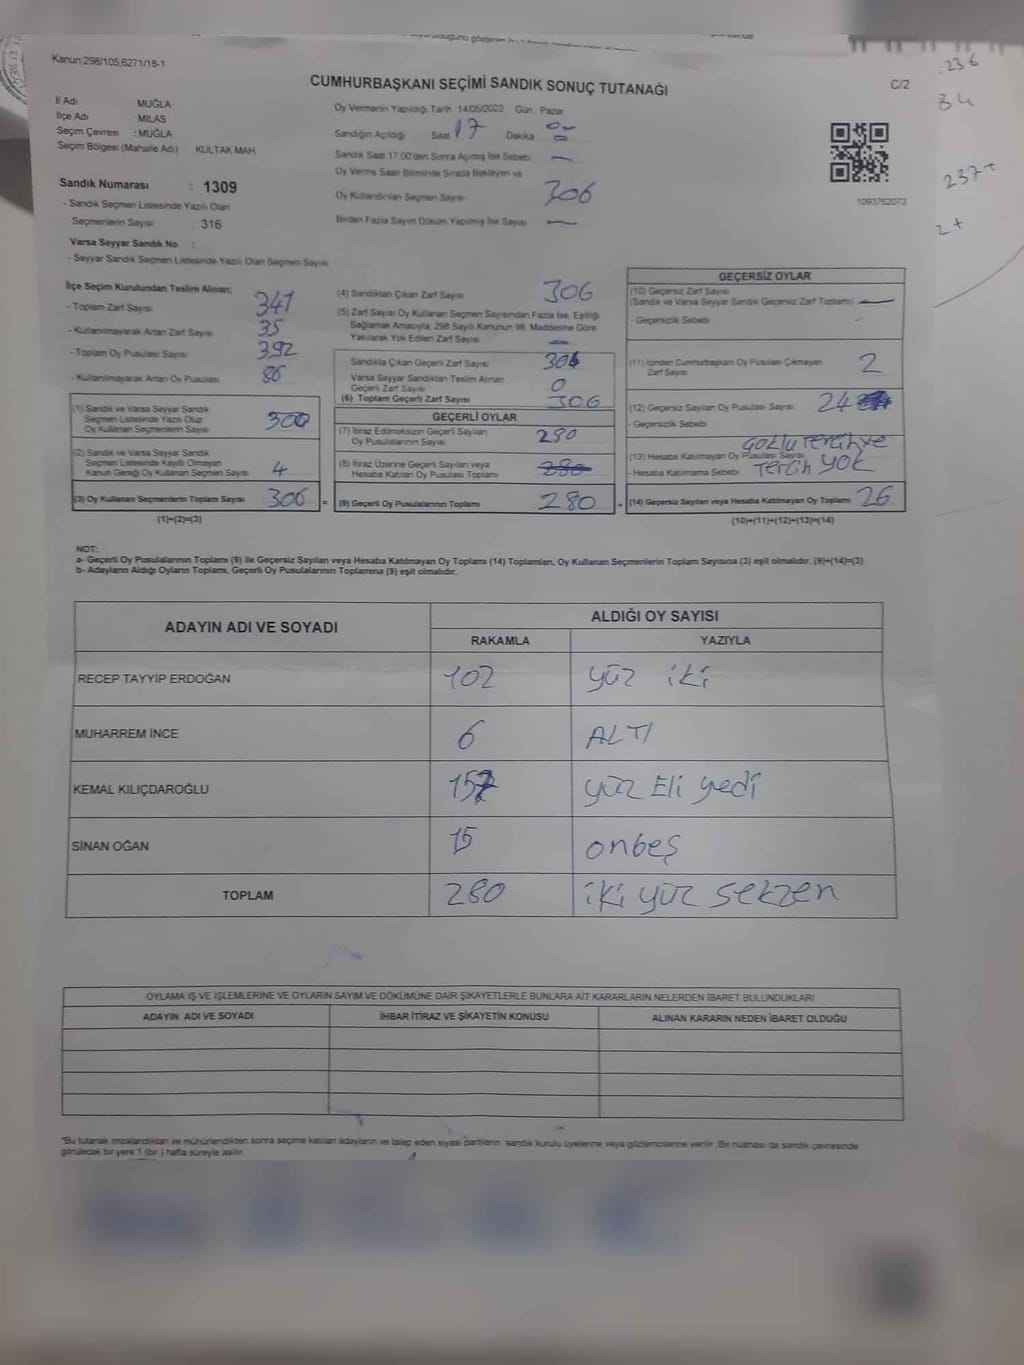 Kanun:298/105,6271/18-1
CUMHURBAŞKANI SEÇİMİ SANDIK SONUÇ TUTANAĞI
C/2
İl Adı MUĞLA
İlçe Adı : MİLAS
Seçim Çevresi : MUĞLA
Seçim Bölgesi (Mahalle Adı) KULTAK MAH.
Sandık Numarası : 1309
- Sandık Seçmen Listesinde Yazılı Olan
Seçmenlerin Sayısı : 316
Varsa Seyyar Sandık No :
- Seyyar Sandık Seçmen Listesinde Yazılı Olan Seçmen Sayısı
Oy Vermenin Yapıldığı Tarih 14/05/2023 Gün : Pazar
Sandığın Açıldığı Saat 17 Dakika
Sandık Saat 17:00'den Sonra Açılmış İse Sebebi —
Oy Verme Saati Bitiminde Sırada Bekleyen ve
Oy Kullandırılan Seçmen Sayısı 306
Birden Fazla Sayım Döküm Yapılmış İse Sayısı —
1093762073
:236
34
237+
2+
İlçe Seçim Kurulundan Teslim Alınan;
- Toplam Zarf Sayısı 341
- Kullanılmayarak Artan Zarf Sayısı 35
- Toplam Oy Pusulası Sayısı 392
- Kullanılmayarak Artan Oy Pusulası 86
(1) Sandık ve Varsa Seyyar Sandık
Seçmen Listesinde Yazılı Olup
Oy Kullanan Seçmenlerin Sayısı
(2) Sandık ve Varsa Seyyar Sandık
Seçmen Listesinde Kayıtlı Olmayan
Kanun Gereği Oy Kullanan Seçmen Sayısı 4
(3) Oy Kullanan Seçmenlerin Toplam Sayısı 306 =
(1)+(2)=(3)
(4) Sandıktan Çıkan Zarf Sayısı 306
(5) Zarf Sayısı Oy Kullanan Seçmen Sayısından Fazla İse, Eşitliği
Sağlamak Amacıyla, 298 Sayılı Kanunun 98. Maddesine Göre
Yakılarak Yok Edilen Zarf Sayısı —
Sandıkta Çıkan Geçerli Zarf Sayısı 306
Varsa Seyyar Sandıktan Teslim Alınan
Geçerli Zarf Sayısı 0
(6) Toplam Geçerli Zarf Sayısı 306
GEÇERLİ OYLAR
(7) İtiraz Edilmeksizin Geçerli Sayılan
Oy Pusulalarının Sayısı 280
(8) İtiraz Üzerine Geçerli Sayılan veya
Hesaba Katılan Oy Pusulası Toplamı 280
(9) Geçerli Oy Pusulalarının Toplamı 280 +
GEÇERSİZ OYLAR
(10) Geçersiz Zarf Sayısı
(Sandık ve Varsa Seyyar Sandık Geçersiz Zarf Toplamı) —
- Geçersizlik Sebebi
(11) İçinden Cumhurbaşkanı Oy Pusulası Çıkmayan
Zarf Sayısı 2
(12) Geçersiz Sayılan Oy Pusulası Sayısı 24
- Geçersizlik Sebebi
(13) Hesaba Katılmayan Oy Pusulası Sayısı
- Hesaba Katılmama Sebebi Tercih YOK
(14) Geçersiz Sayılan veya Hesaba Katılmayan Oy Toplamı 26
(10)+(11)+(12)+(13)=(14)
NOT:
a- Geçerli Oy Pusulalarının Toplamı (9) ile Geçersiz Sayılan veya Hesaba Katılmayan Oy Toplamı (14) Toplamları, Oy Kullanan Seçmenlerin Toplam Sayısına (3) eşit olmalıdır. (9)+(14)=(3)
b- Adayların Aldığı Oyların Toplamı, Geçerli Oy Pusulalarının Toplamına (9) eşit olmalıdır.
ADAYIN ADI VE SOYADI
ALDIĞI OY SAYISI
RAKAMLA YAZIYLA
RECEP TAYYİP ERDOĞAN 102 yüz iki
MUHARREM İNCE 6 ALTI
KEMAL KILIÇDAROĞLU 157 yüz Eli yedi
SİNAN OĞAN 15 onbeş
TOPLAM 280 iki yüz sekzen
OYLAMA İŞ VE İŞLEMLERİNE VE OYLARIN SAYIM VE DÖKÜMÜNE DAİR ŞİKAYETLERLE BUNLARA AİT KARARLARIN NELERDEN İBARET BULUNDUKLARI
ADAYIN ADI VE SOYADI İHBAR İTİRAZ VE ŞİKAYETİN KONUSU ALINAN KARARIN NEDEN İBARET OLDUĞU
*Bu tutanak imzalandıktan ve mühürlendikten sonra seçime katılan adayların ve talep eden siyasi partilerin sandık kurulu üyelerine veya gözlemcilerine verilir. Bir nüshası da sandık çevresinde
görülecek bir yere 1 (bir ) hafta süreyle asılır.